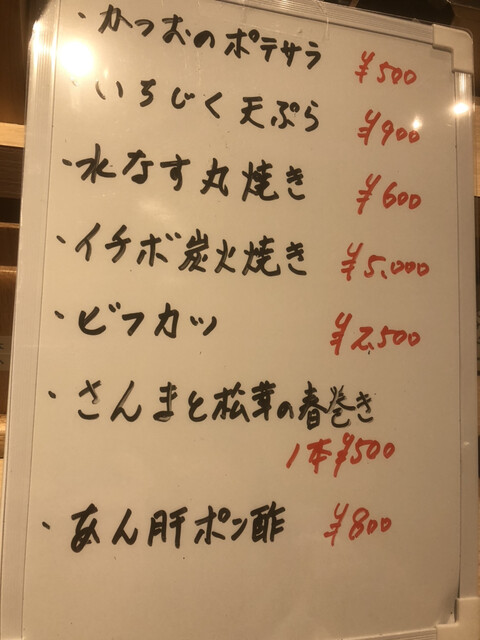 ・かつおのポテサラ ¥500
・いちじく天ぷら ¥900
・水なす丸焼き ¥600
・イチボ炭火焼き ¥5,000
・ビフカツ ¥2,500
・さんまと松茸の春巻き
1本¥500
・あん肝ポン酢 ¥800